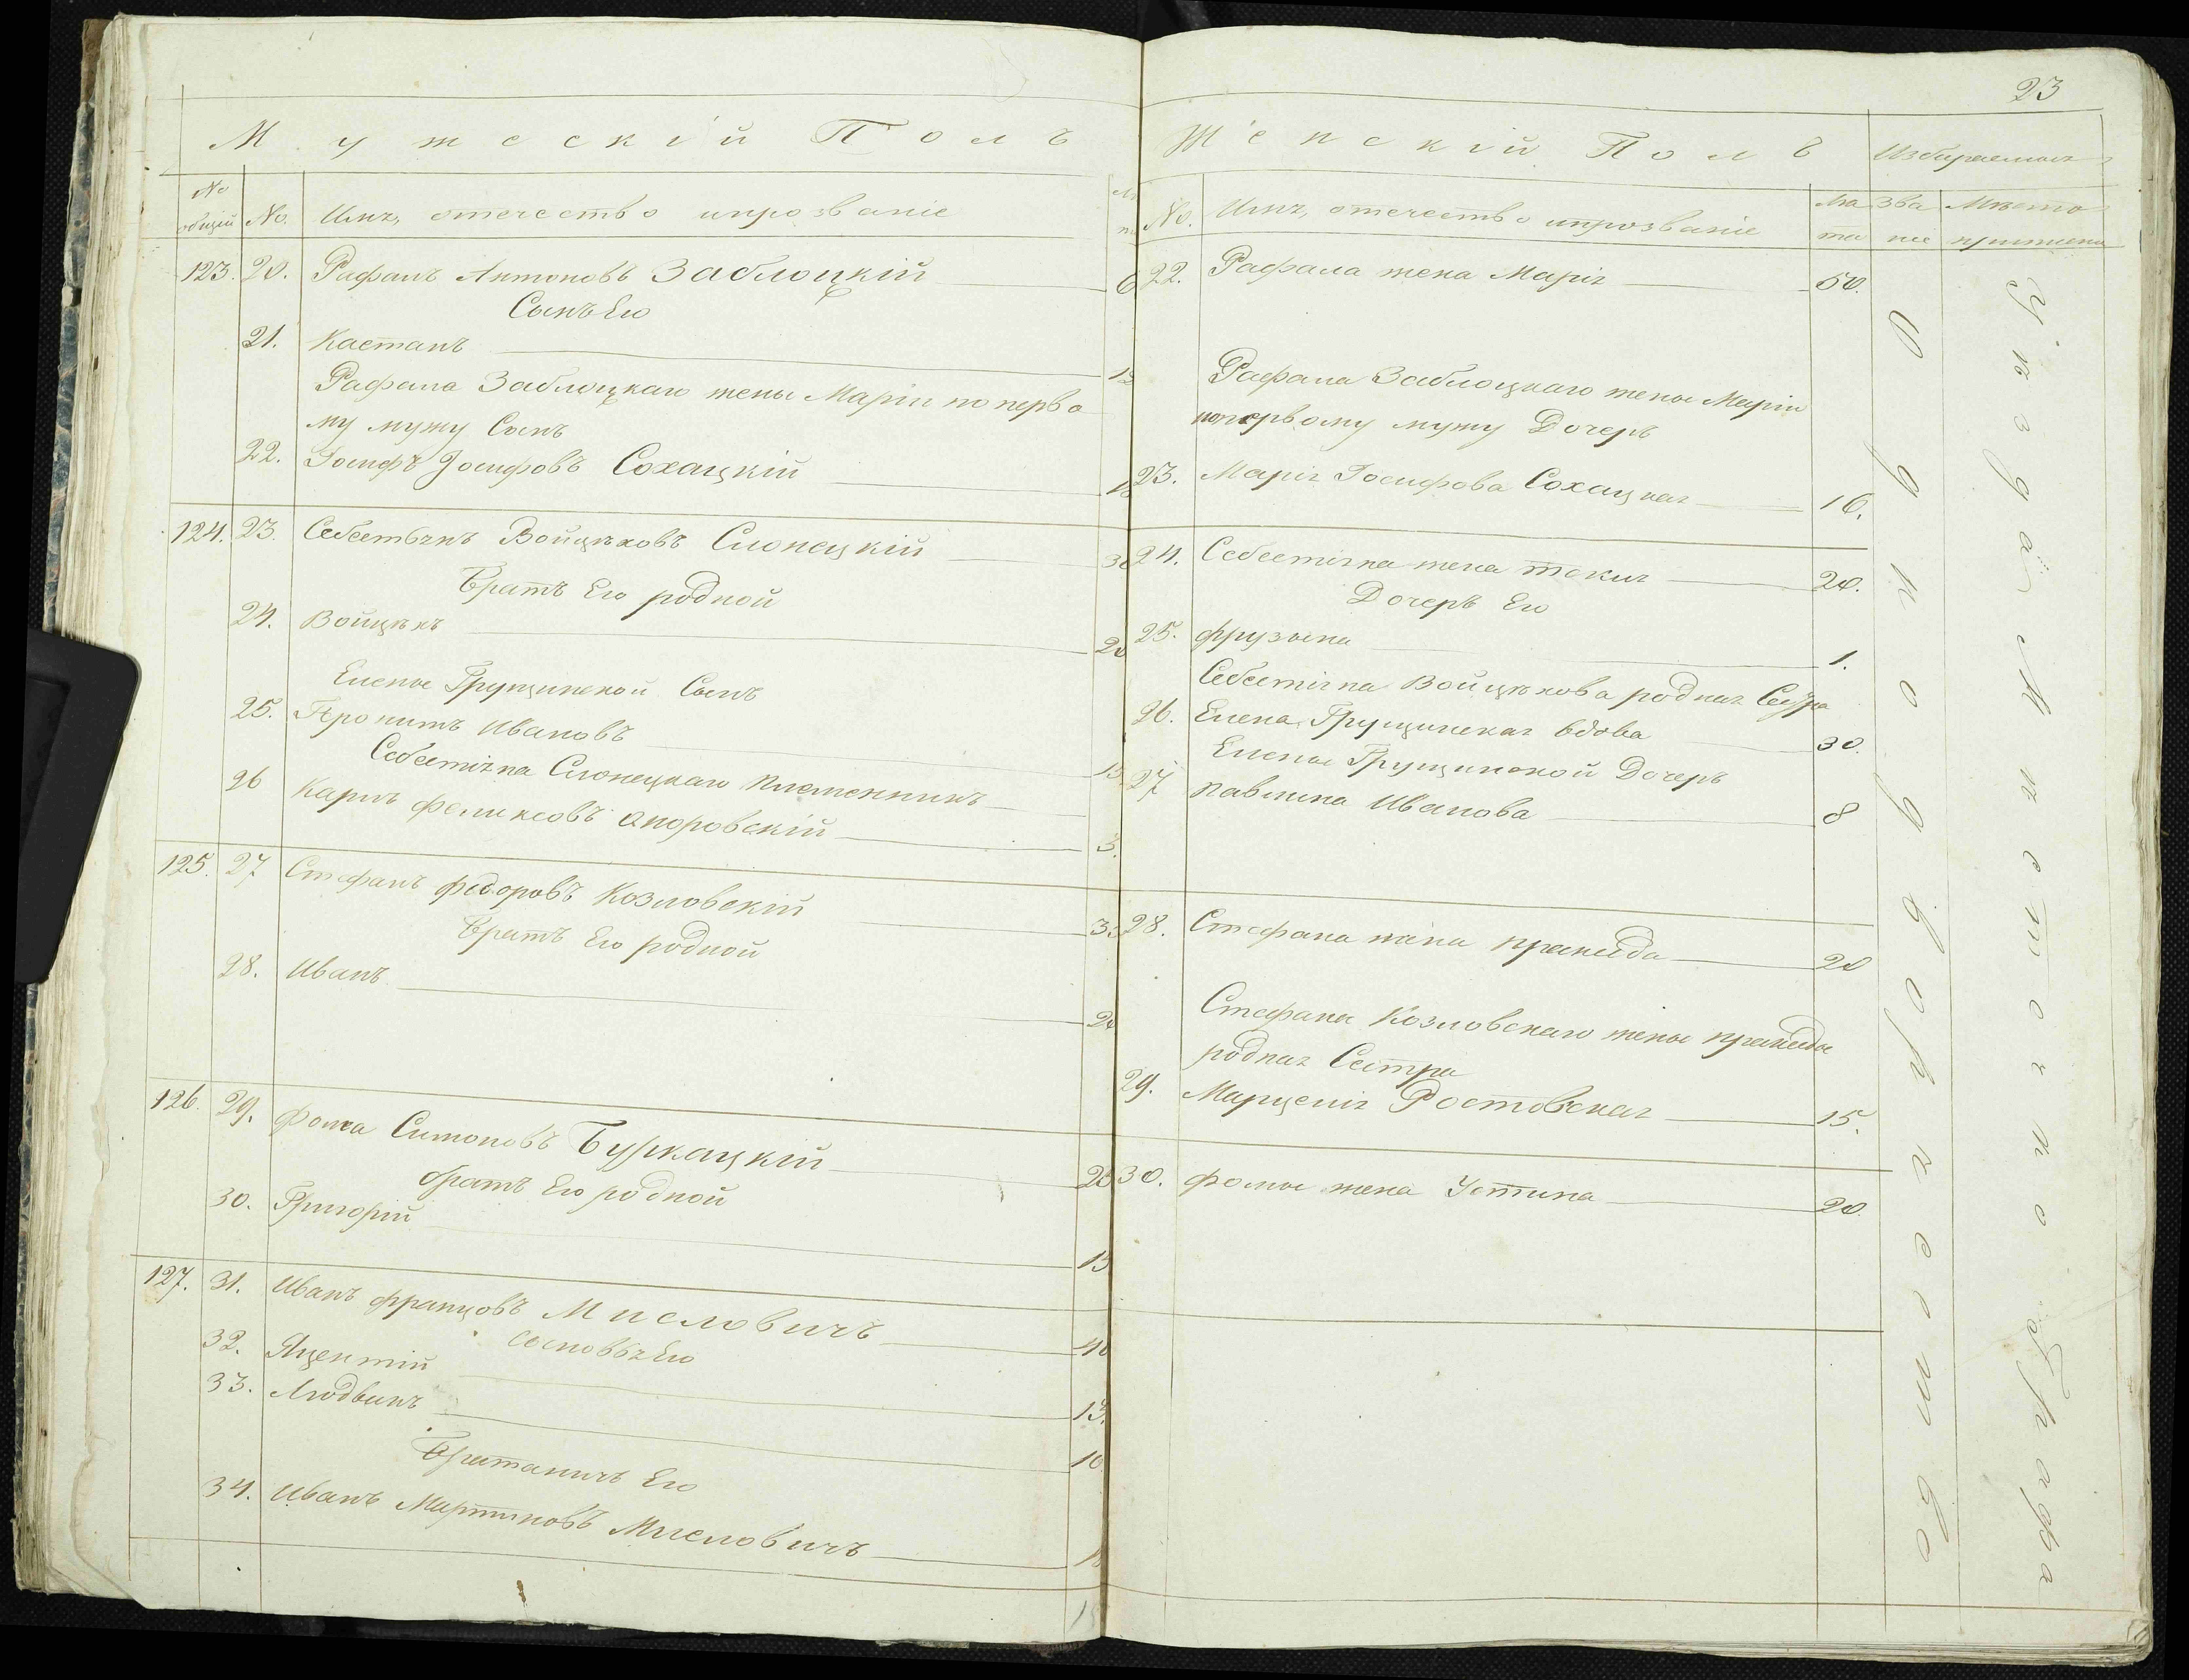 23
Мужескій Полъ
No общій No. Имя, отечество ипрозваніе
123. 20. Рафаилъ Антоновъ Заблоцкій
Сынъ Его
21. Каетанъ
Рафала Заблоцкаго жены Маріи поперво
му мужу Сынъ
22. Іосифъ Іосифовъ Сохацкій
124. 23. Себестьянъ Войцѣховъ Слонецкій
Братъ Его родной
24. Войцѣхъ
Елены Грущинской Сынъ
25. Ивановъ
Себестіяна Слонецкаго племенникъ
26 Карлъ Феликсовъ
125. 27 Стефанъ Федоровъ Козловскій
Братъ Его родной
28. Иванъ
126. 29. Фома Симоновъ Буркацкій
братъ Его родной
30. Григорій
127. 31. Иванъ Францовъ Мисловичъ 40
сыновья Его
32. Яцентій 13.
33. Людвикъ 10
Братаничъ Его
34. Иванъ Мартиновъ Мисловичъ
Женскій Полъ
No. Имя, отечество ипрозваніе Лѣта Званіе Мѣсто
22. Рафала жена Марія 50.
Рафала Заблоцкаго жены Маріи
попервому мужу Дочерь
23. Марія Іосифова Сохацкая 16.
24. Себестіяна жена Текля 20.
Дочерь Его
25. Фрузына 1.
Себестіяна Войцѣхова родная Сестра
26. Елена Грущинская вдова 30.
Елены Грущинской Дочерь
27 Павлина Иванова 8
28. Стефана жена Пракседа 20
Стефана Козловскаго жены Пракседы
родная Сестра
29. Марцелія Ростовская 15.
30. Фомы жена Устина 20.
Однодворческое